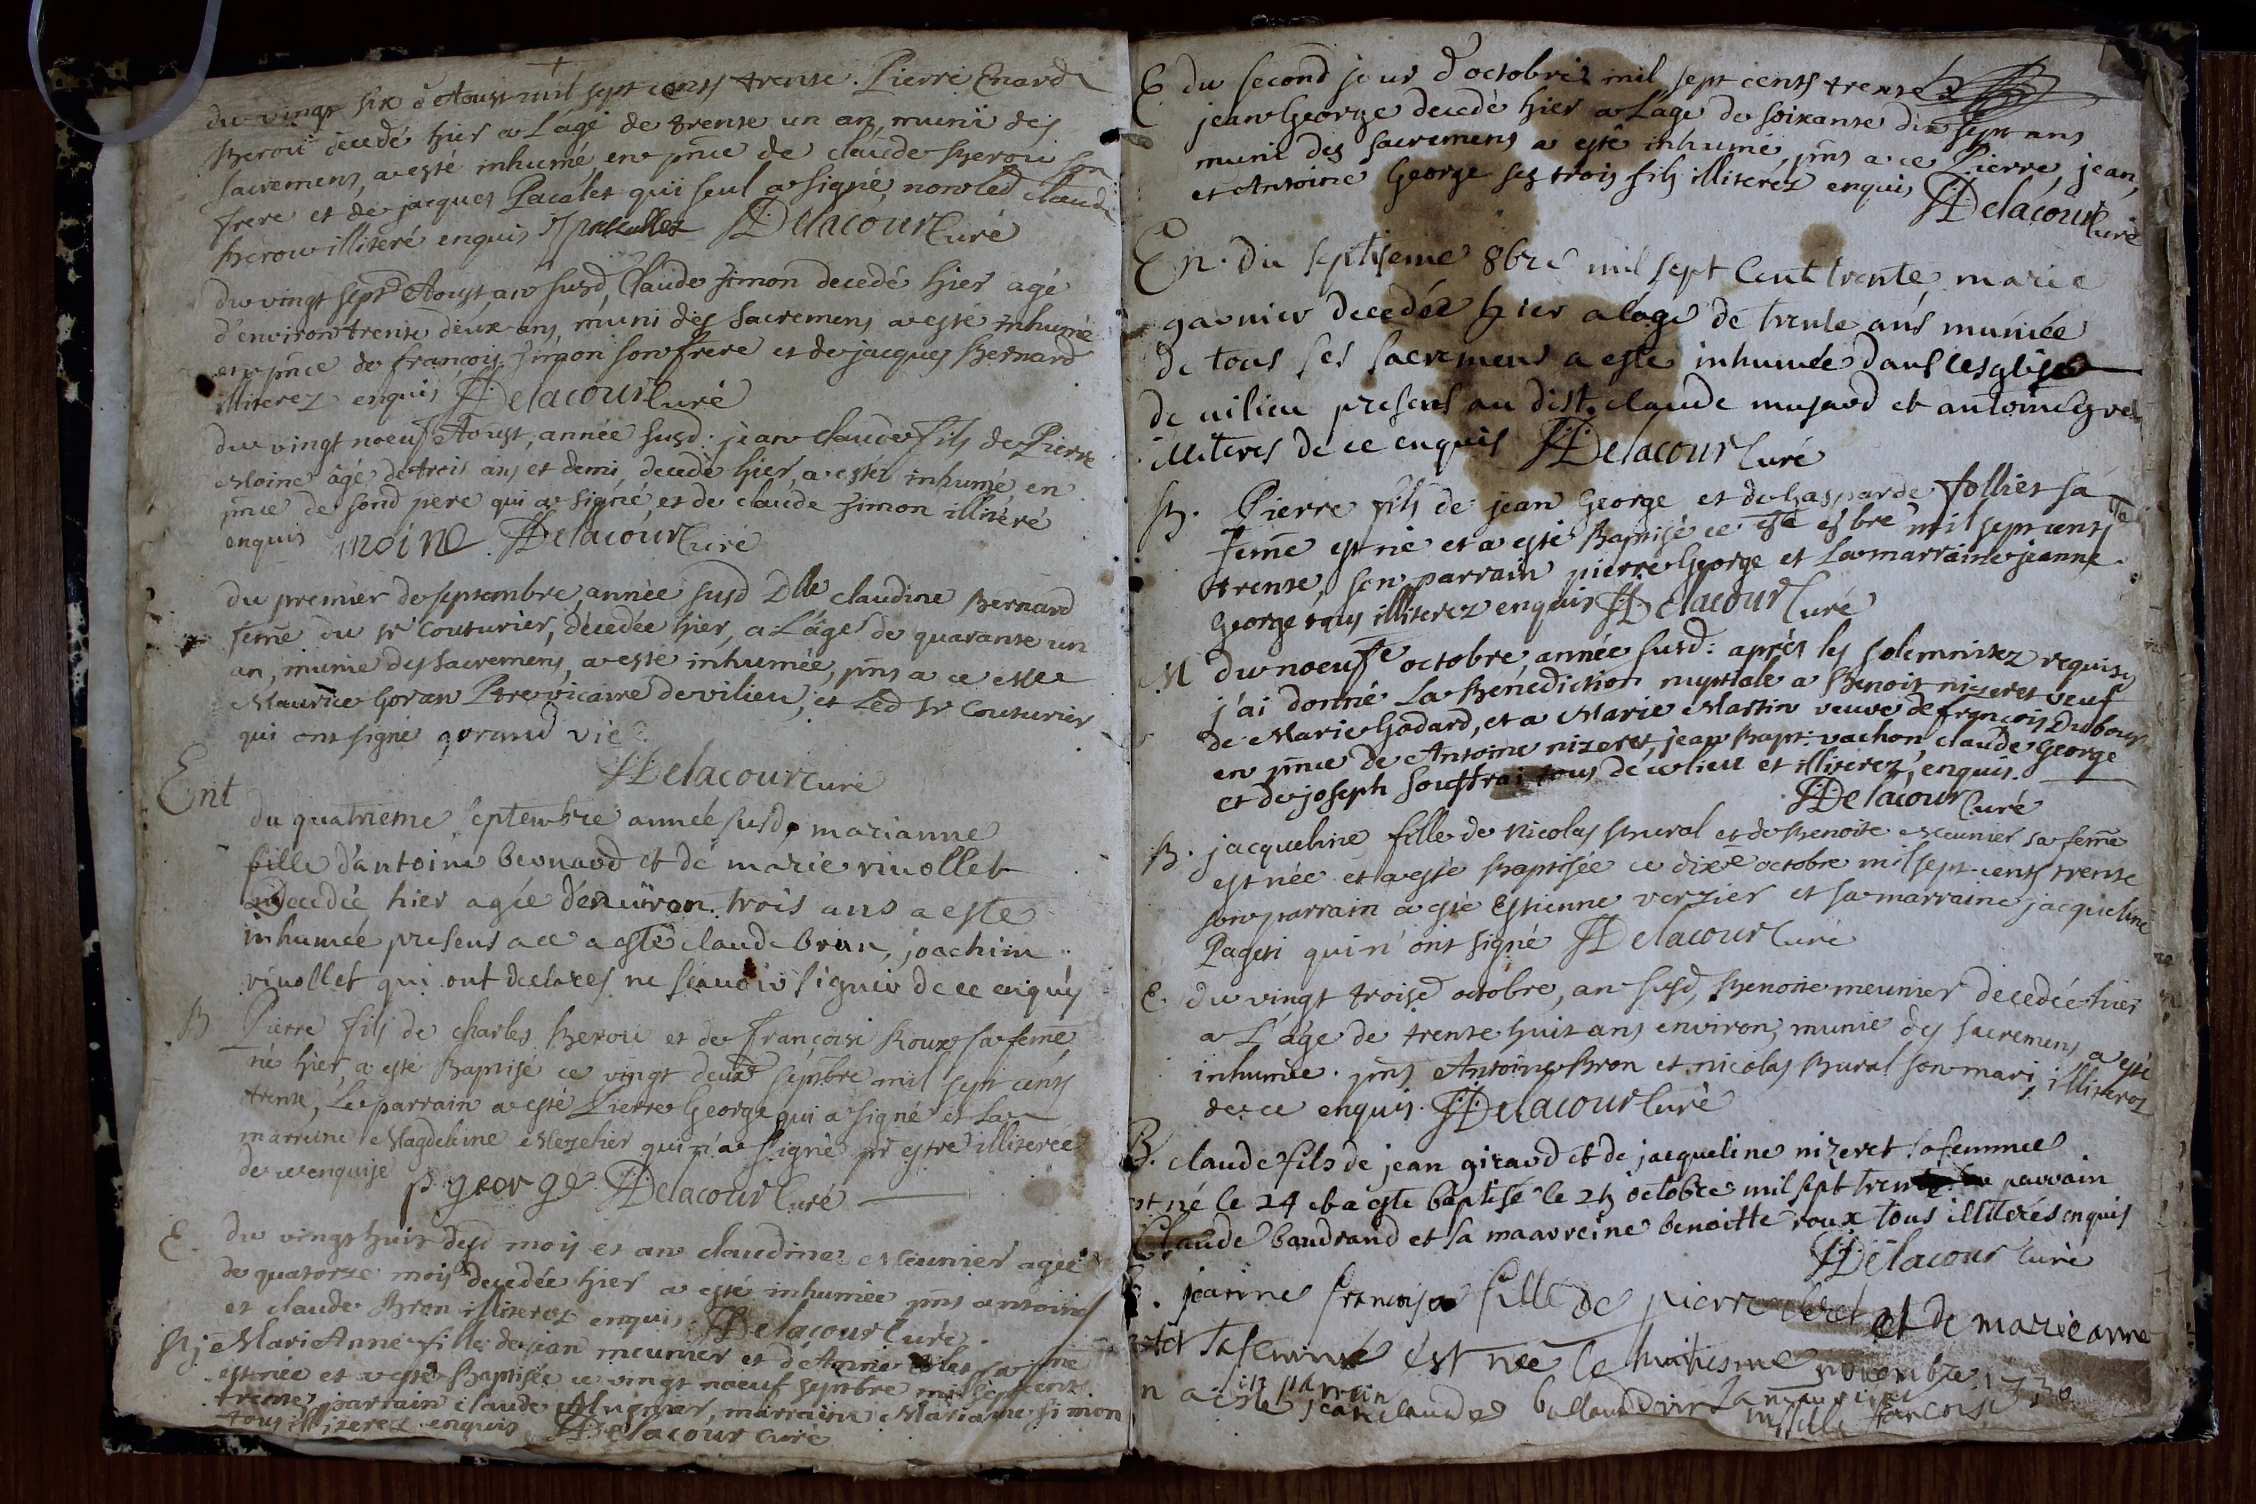 du vingt six d'Aoust mil sept cents trente. Pierre Enard
Berou decedé hier a L'âge de trente un an muni des
sacremens, a esté inhumé en pnce de claude Berou son
frere et de jacques Pacalet qui seul a signé, non led claude
berou illiteré enquis J pacallet Delacour Curé
du vingt sept Aoust, an susd, Claude simon decedé hier agé
d'environ trente deux ans, muni des sacremens a esté inhumé
en pnce de francois simon son frere et de jacques Bernard
illiterez enquis Delacour Curé
du vingt noeuf Aoust, année susd: jean claude fils de Pierre
Moine âgé de trois ans et demi, decedé hier, a esté inhumé, en
pnce de sond pere qui a signé, et de claude simon illiteré
enquis moine. Delacour Curé
du premier de septembre, année susd Dlle claudine Bernard
feme du sr Couturier, décedée hier, a L'âge de quarante un
an, munie des sacremens, a esté inhumée, pns a ce
Maurice Goran Ptre vicaire de vilieu, et Led sr Couturier
qui ont signé gorand vic
Delacour Curé
Ent
du quatrieme septembre année susd, marianne
fille d'antoine bernard et de marie riuollet
decedée hier agée d'enuiron trois ans a este
inhumée presens a ce a esté claude bron, joachim
riuollet qui ont declarés ne scauoir signer de ce enquis
B Pierre fils de charles Berou et de francoise Roux sa feme
né hier, a esté Baptisé ce vingt deuxe septbre mil sept cents
trente, Le parrain a esté Pierre George qui a signé et La
marraine Magdeleine Mezelier qui n'a signé pr estre illiterée
de ce enquise p george Delacour Curé
E. du vingt huit desd mois et an claudine Meunier agée
de quatorze mois decedée hier a esté inhumée pns antoine
et claude Bron illiterez enquis. Delacour Curé
B. MariAnne fille de jean meunier et d'Anne sa feme
est née et a esté Baptisée ce vingt noeuf septbre mil sept cents
trente, parrain claude Meunier, marraine Mariane simon
tous illiterez enquis Delacour Curé
E du second jour d'octobre mil sept cents trente
jean George decedé hier a L'âge de soixante dix sept ans
muni des sacremens a esté inhumé, pns a ce Pierre, jean,
et Antoine George ses trois fils illiterez enquis Delacour Curé
En. du septiseme 8bre mil sept Cent trente marie
garnier decedée hier a lage de trente ans muniée
de tous ses sacremens a este inhumée dans lesglise
de uilieu presens au dist. claude mujard et antoine
illiteres de ce enquis Delacour Curé
B. Pierre fils de jean George et de Gasparde follier sa
feme est né et a esté Baptisé ce 8bre mil sept cents
trente, son parrain pierre George et La marraine jeanne
George tous illiterez enquis Delacour Curé
M du noeufe octobre, année susd: aprés les solemnitez requises
j'ai donné La Bénédiction nuptiale a Benoit nizeret veuf
de Marie Godard, et a Marie Martin veuve de françois Dubourg
en pnce de Antoine nizeret, jean bapt: vachon, claude George
et de joseph souffrai tous de ce lieu et illiterez, enquis.
Delacour Curé
B. jacqueline fille de nicolas Bural et de Benoite Meunier sa feme
est née et a esté Baptisée ce dixe octobre mil sept cents trente
son parrain a esté Estienne verzier et sa marraine jacqueline
Pageri qui n'ont signé Delacour Curé
E. du vingt troise octobre, an susd, Benoite meunier decedée hier
a L'âge de trente huit ans environ, munie des sacremens a esté
inhumée. pns Antoine Bron et nicolas Bural son mari, illiterez
de ce enquis. Delacour Curé
B. claude fils de jean giraud et de jacqueline nizeret sa femme
est né le 24 et a este baptise le 25 octobre mil sept parrain
Claude baudrand et sa maarreine benoitte roux tous illiterés enquis
Delacour Curé
jeanne francoise fille de pierre et de marie anne
sa femme est née le huitiesme novembre 1730
a este parrain jean claude La mareine
francoise